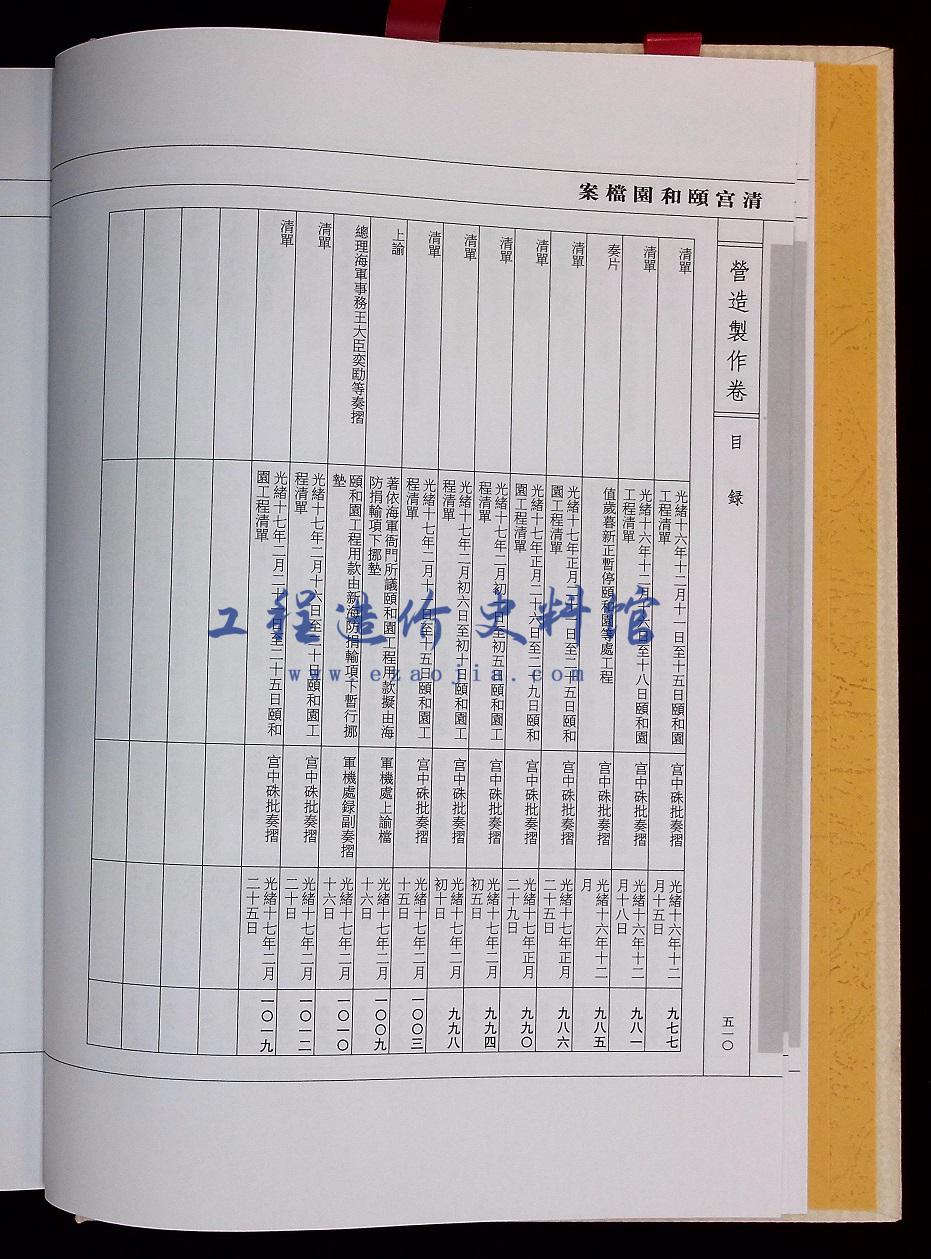 清宮頤和園檔案
營造製作卷
目録
五一〇
清單
光緒十六年十二月十一日至十五日頤和園
工程清單
宮中硃批奏摺
光緒十六年十二
月十五日
九七七
清單
光緒十六年十二月十六日至十八日頤和園
工程清單
宮中硃批奏摺
光緒十六年十二
月十八日
九八一
奏片
值歲暮新正暫停頤和園等處工程
宮中硃批奏摺
光緒十六年十二
月
九八五
清單
光緒十七年正月二十一日至二十五日頤和
園工程清單
宮中硃批奏摺
光緒十七年正月
二十五日
九八六
清單
光緒十七年正月二十六日至二十九日頤和
園工程清單
宮中硃批奏摺
光緒十七年正月
二十九日
九九〇
清單
光緒十七年二月初一日至初五日頤和園工
程清單
宮中硃批奏摺
光緒十七年二月
初五日
九九四
清單
光緒十七年二月初六日至初十日頤和園工
程清單
宮中硃批奏摺
光緒十七年二月
初十日
九九八
清單
光緒十七年二月十一日至十五日頤和園工
程清單
宮中硃批奏摺
光緒十七年二月
十五日
一〇〇三
上諭
著依海軍衙門所議頤和園工程用款擬由海
防捐輸項下挪墊
軍機處上諭檔
光緒十七年二月
十六日
一〇〇九
總理海軍事務王大臣奕劻等奏摺
頤和園工程用款由新海防捐輸項下暫行挪
墊
軍機處録副奏摺
光緒十七年二月
十六日
一〇一〇
清單
光緒十七年二月十六日至二十日頤和園工
程清單
宮中硃批奏摺
光緒十七年二月
二十日
一〇一二
清單
光緒十七年二月二十一日至二十五日頤和
園工程清單
宮中硃批奏摺
光緒十七年二月
二十五日
一〇一九
工程造价史料馆
www.ezaojia.com